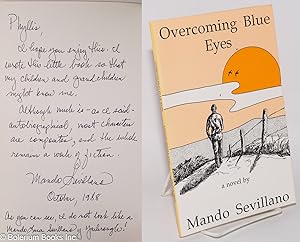 Phyllis
I hope you enjoy this. I
wrote this little book so that
my children and grandchildren
might know me.
Although much is - as I said -
autobiographical, most characters
are composites, and the whole
remain a work of fiction.
Mando Sevillano
October, 1988
As you can see, I do not look like a
Mando Luis Sevillano y
Bolerium Books Inc.
Overcoming Blue
Eyes
a novel by
Mando Sevillano